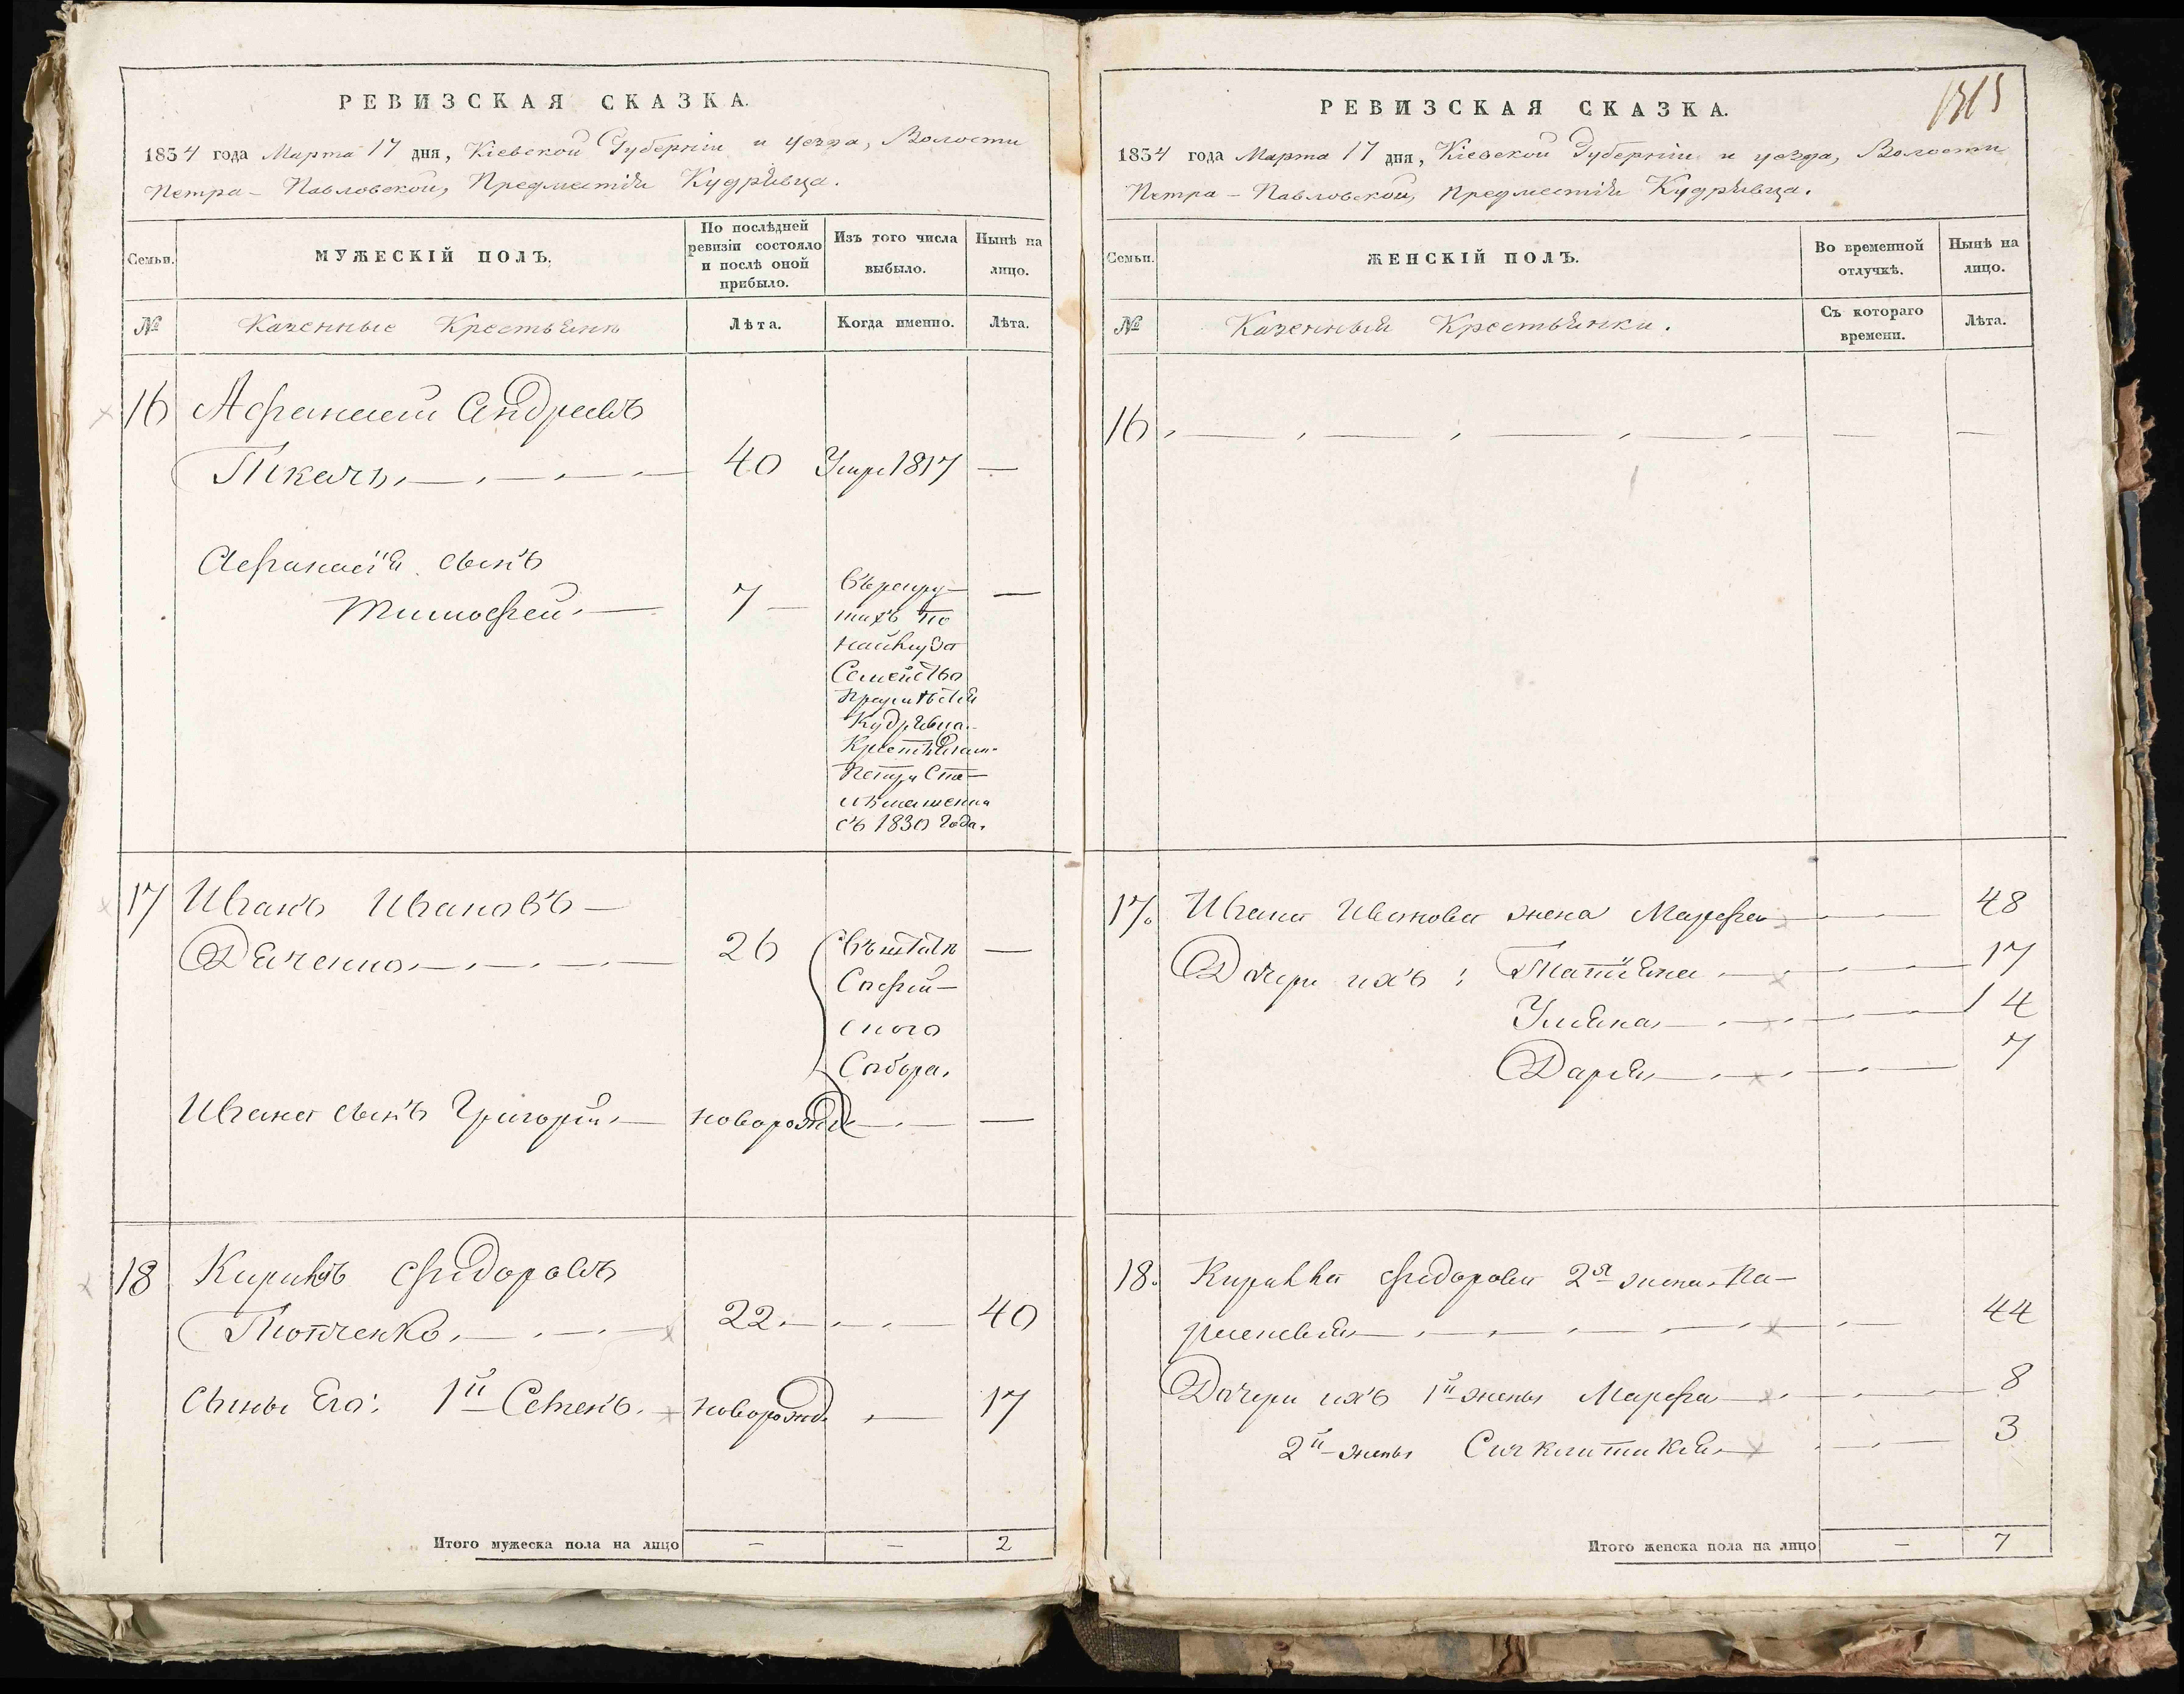 РЕВИЗСКАЯ СКАЗКА.
1834 года Марта 17 дня, Кіевской Губерніи и уезда, Волости
Петра-Павловской, Предместія Кудрявца.
Семьи.
МУЖЕСКІЙ ПОЛЪ.
По послѣдней ревизіи состояло и послѣ оной прибыло.
Изъ того числа выбыло.
Нынѣ на лицо.
№
Казенные Крестьяне
Лѣта.
Когда именно.
Лѣта.
16 Афанасій Андреевъ
Ткачъ, 40 Умре 1817 —
Афанасія сынъ
Тимофей. 7 — —
Въ рекру-
тахъ по
найму за
Семейство
Предмѣстія
Кудрявца
Крестьянина
Петра
съ 1830 года.
17 Иванъ Ивановъ —
Дяченко, 26 Въ штатѣ —
Софій-
ского
Собора,
Ивана сынъ Григорій, новорожд. —
18 Кирилъ Фидоровъ
22. 40
Сыны Его: 1й новорожд. 17
Итого мужеска пола на лицо — — 2
1315
РЕВИЗСКАЯ СКАЗКА.
1834 года Марта 17 дня, Кіевской Губерніи и уезда, Волости
Петра-Павловской, Предместія Кудрявца.
Семьи.
ЖЕНСКІЙ ПОЛЪ.
Во временной отлучкѣ.
Нынѣ на лицо.
№
Казенныя Крестьянки.
Съ котораго времени.
Лѣта.
16
17. Ивана Иванова жена Марфа 48
Дочери ихъ: Татіяна 17
Уліяна 14
Дарія 7
18. Кирилла Фидорова 2я жена Па-
раскевія 44
Дочери ихъ 1й жены Марфа 8
2й жены Сигклитикія 3
Итого женска пола на лицо — 7